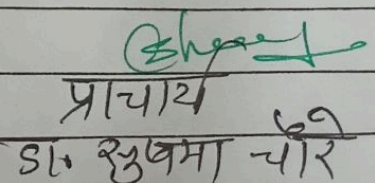 प्राचार्य
डॉ. सुषमा चौरे